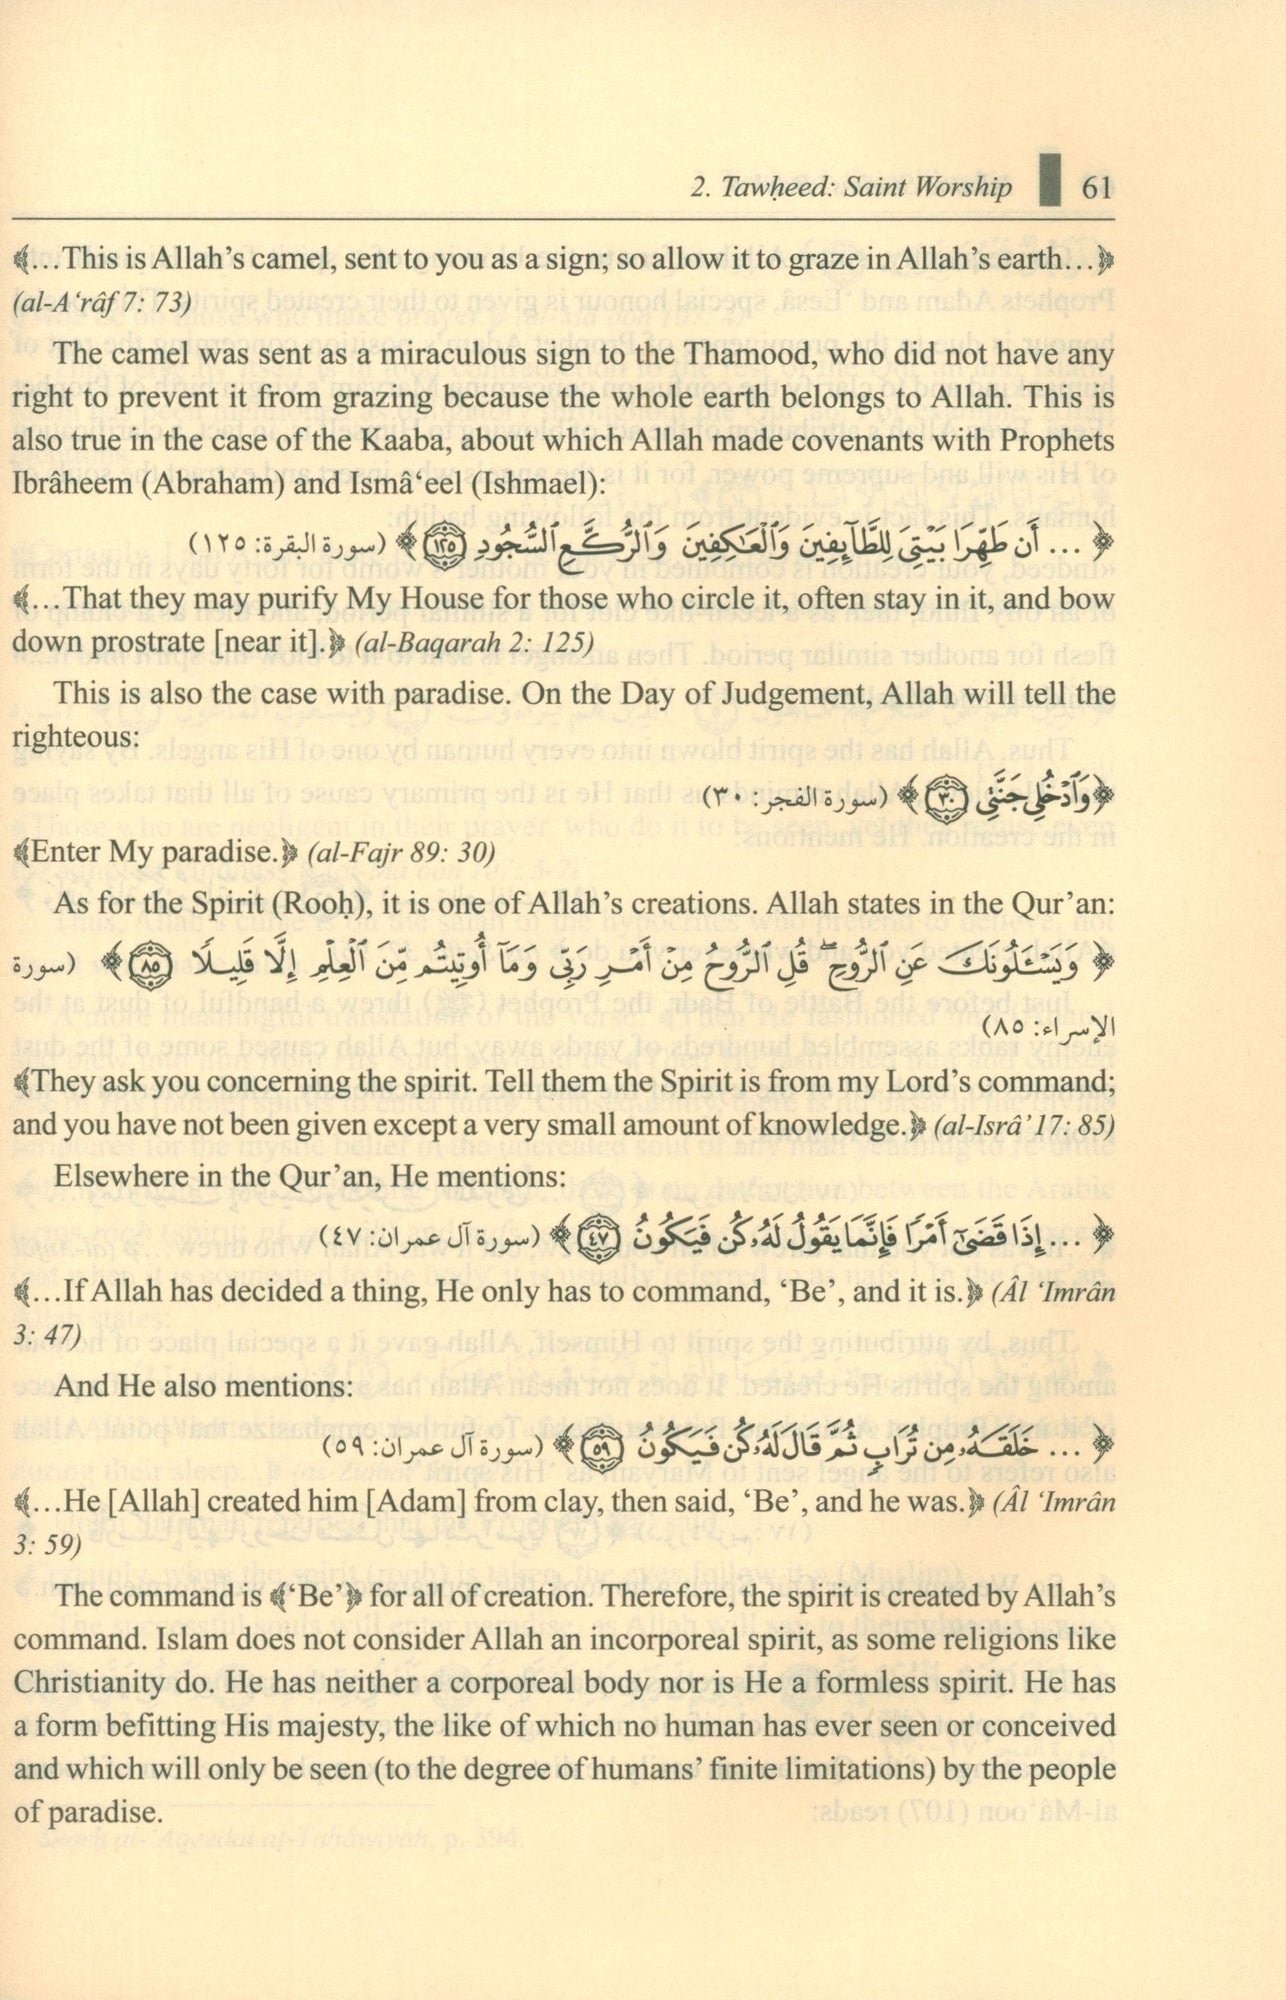 2. Tawḥeed: Saint Worship 61
﴾…This is Allah’s camel, sent to you as a sign; so allow it to graze in Allah’s earth…﴿
(al-A‘râf 7: 73)
The camel was sent as a miraculous sign to the Thamood, who did not have any
right to prevent it from grazing because the whole earth belongs to Allah. This is
also true in the case of the Kaaba, about which Allah made covenants with Prophets
Ibrâheem (Abraham) and Ismâ‘eel (Ishmael):
﴿ ... أَن طَهِّرَا بَيْتِىَ لِلطَّآئِفِينَ وَٱلْعَـٰكِفِينَ وَٱلرُّكَّعِ ٱلسُّجُودِ ١٢٥ ﴾ (سورة البقرة: ١٢٥)
﴾…That they may purify My House for those who circle it, often stay in it, and bow
down prostrate [near it].﴿ (al-Baqarah 2: 125)
This is also the case with paradise. On the Day of Judgement, Allah will tell the
righteous:
﴿وَٱدْخُلِى جَنَّتِى ٣٠ ﴾ (سورة الفجر: ٣٠)
﴾Enter My paradise.﴿ (al-Fajr 89: 30)
As for the Spirit (Rooḥ), it is one of Allah’s creations. Allah states in the Qur’an:
﴿ وَيَسْـَٔلُونَكَ عَنِ ٱلرُّوحِ ۖ قُلِ ٱلرُّوحُ مِنْ أَمْرِ رَبِّى وَمَآ أُوتِيتُم مِّنَ ٱلْعِلْمِ إِلَّا قَلِيلًا ٨٥ ﴾ (سورة
الإسراء: ٨٥)
﴾They ask you concerning the spirit. Tell them the Spirit is from my Lord’s command;
and you have not been given except a very small amount of knowledge.﴿ (al-Isrâ’ 17: 85)
Elsewhere in the Qur’an, He mentions:
﴿ ... إِذَا قَضَىٰٓ أَمْرًا فَإِنَّمَا يَقُولُ لَهُۥ كُن فَيَكُونُ ٤٧ ﴾ (سورة آل عمران: ٤٧)
﴾…If Allah has decided a thing, He only has to command, ‘Be’, and it is.﴿ (Âl ‘Imrân
3: 47)
And He also mentions:
﴿ ... خَلَقَهُۥ مِن تُرَابٍ ثُمَّ قَالَ لَهُۥ كُن فَيَكُونُ ٥٩ ﴾ (سورة آل عمران: ٥٩)
﴾…He [Allah] created him [Adam] from clay, then said, ‘Be’, and he was.﴿ (Âl ‘Imrân
3: 59)
The command is ﴾‘Be’﴿ for all of creation. Therefore, the spirit is created by Allah’s
command. Islam does not consider Allah an incorporeal spirit, as some religions like
Christianity do. He has neither a corporeal body nor is He a formless spirit. He has
a form befitting His majesty, the like of which no human has ever seen or conceived
and which will only be seen (to the degree of humans’ finite limitations) by the people
of paradise.